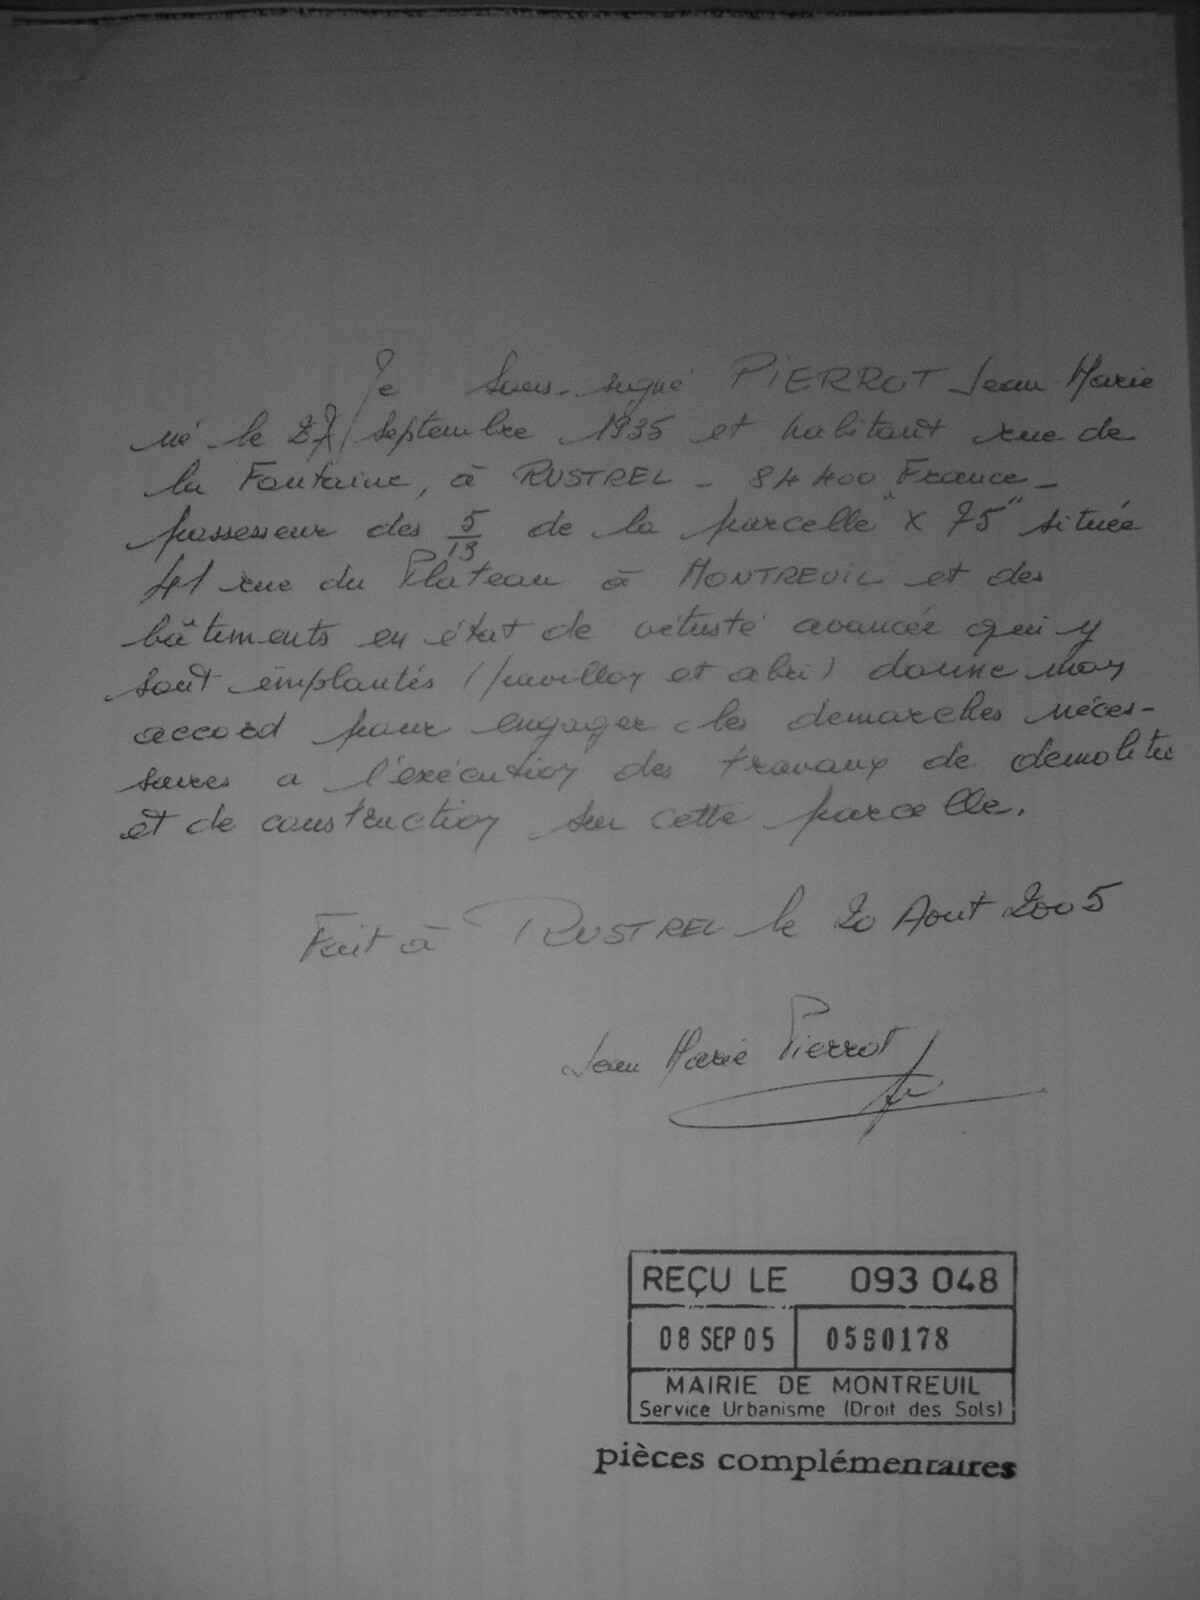 Je sous-signé PIERROT Jean Marie
né le 27 septembre 1935 et habitant rue de
la Fontaine, à RUSTREL - 84400 France -
possesseur des 5/13 de la parcelle "X 75" située
41 rue du Plateau à MONTREUIL et des
bâtiments en état de vétusté avancée qui y
sont implantés (pavillon et abri) donne mon
accord pour engager les demarches néces-
saires a l'exécution des travaux de demolition
et de construction sur cette parcelle.
Fait à RUSTREL le 20 Aout 2005
Jean Marie Pierrot
REÇU LE 093 048
08 SEP 05 0580178
MAIRIE DE MONTREUIL
Service Urbanisme (Droit des Sols)
pièces complémentaires